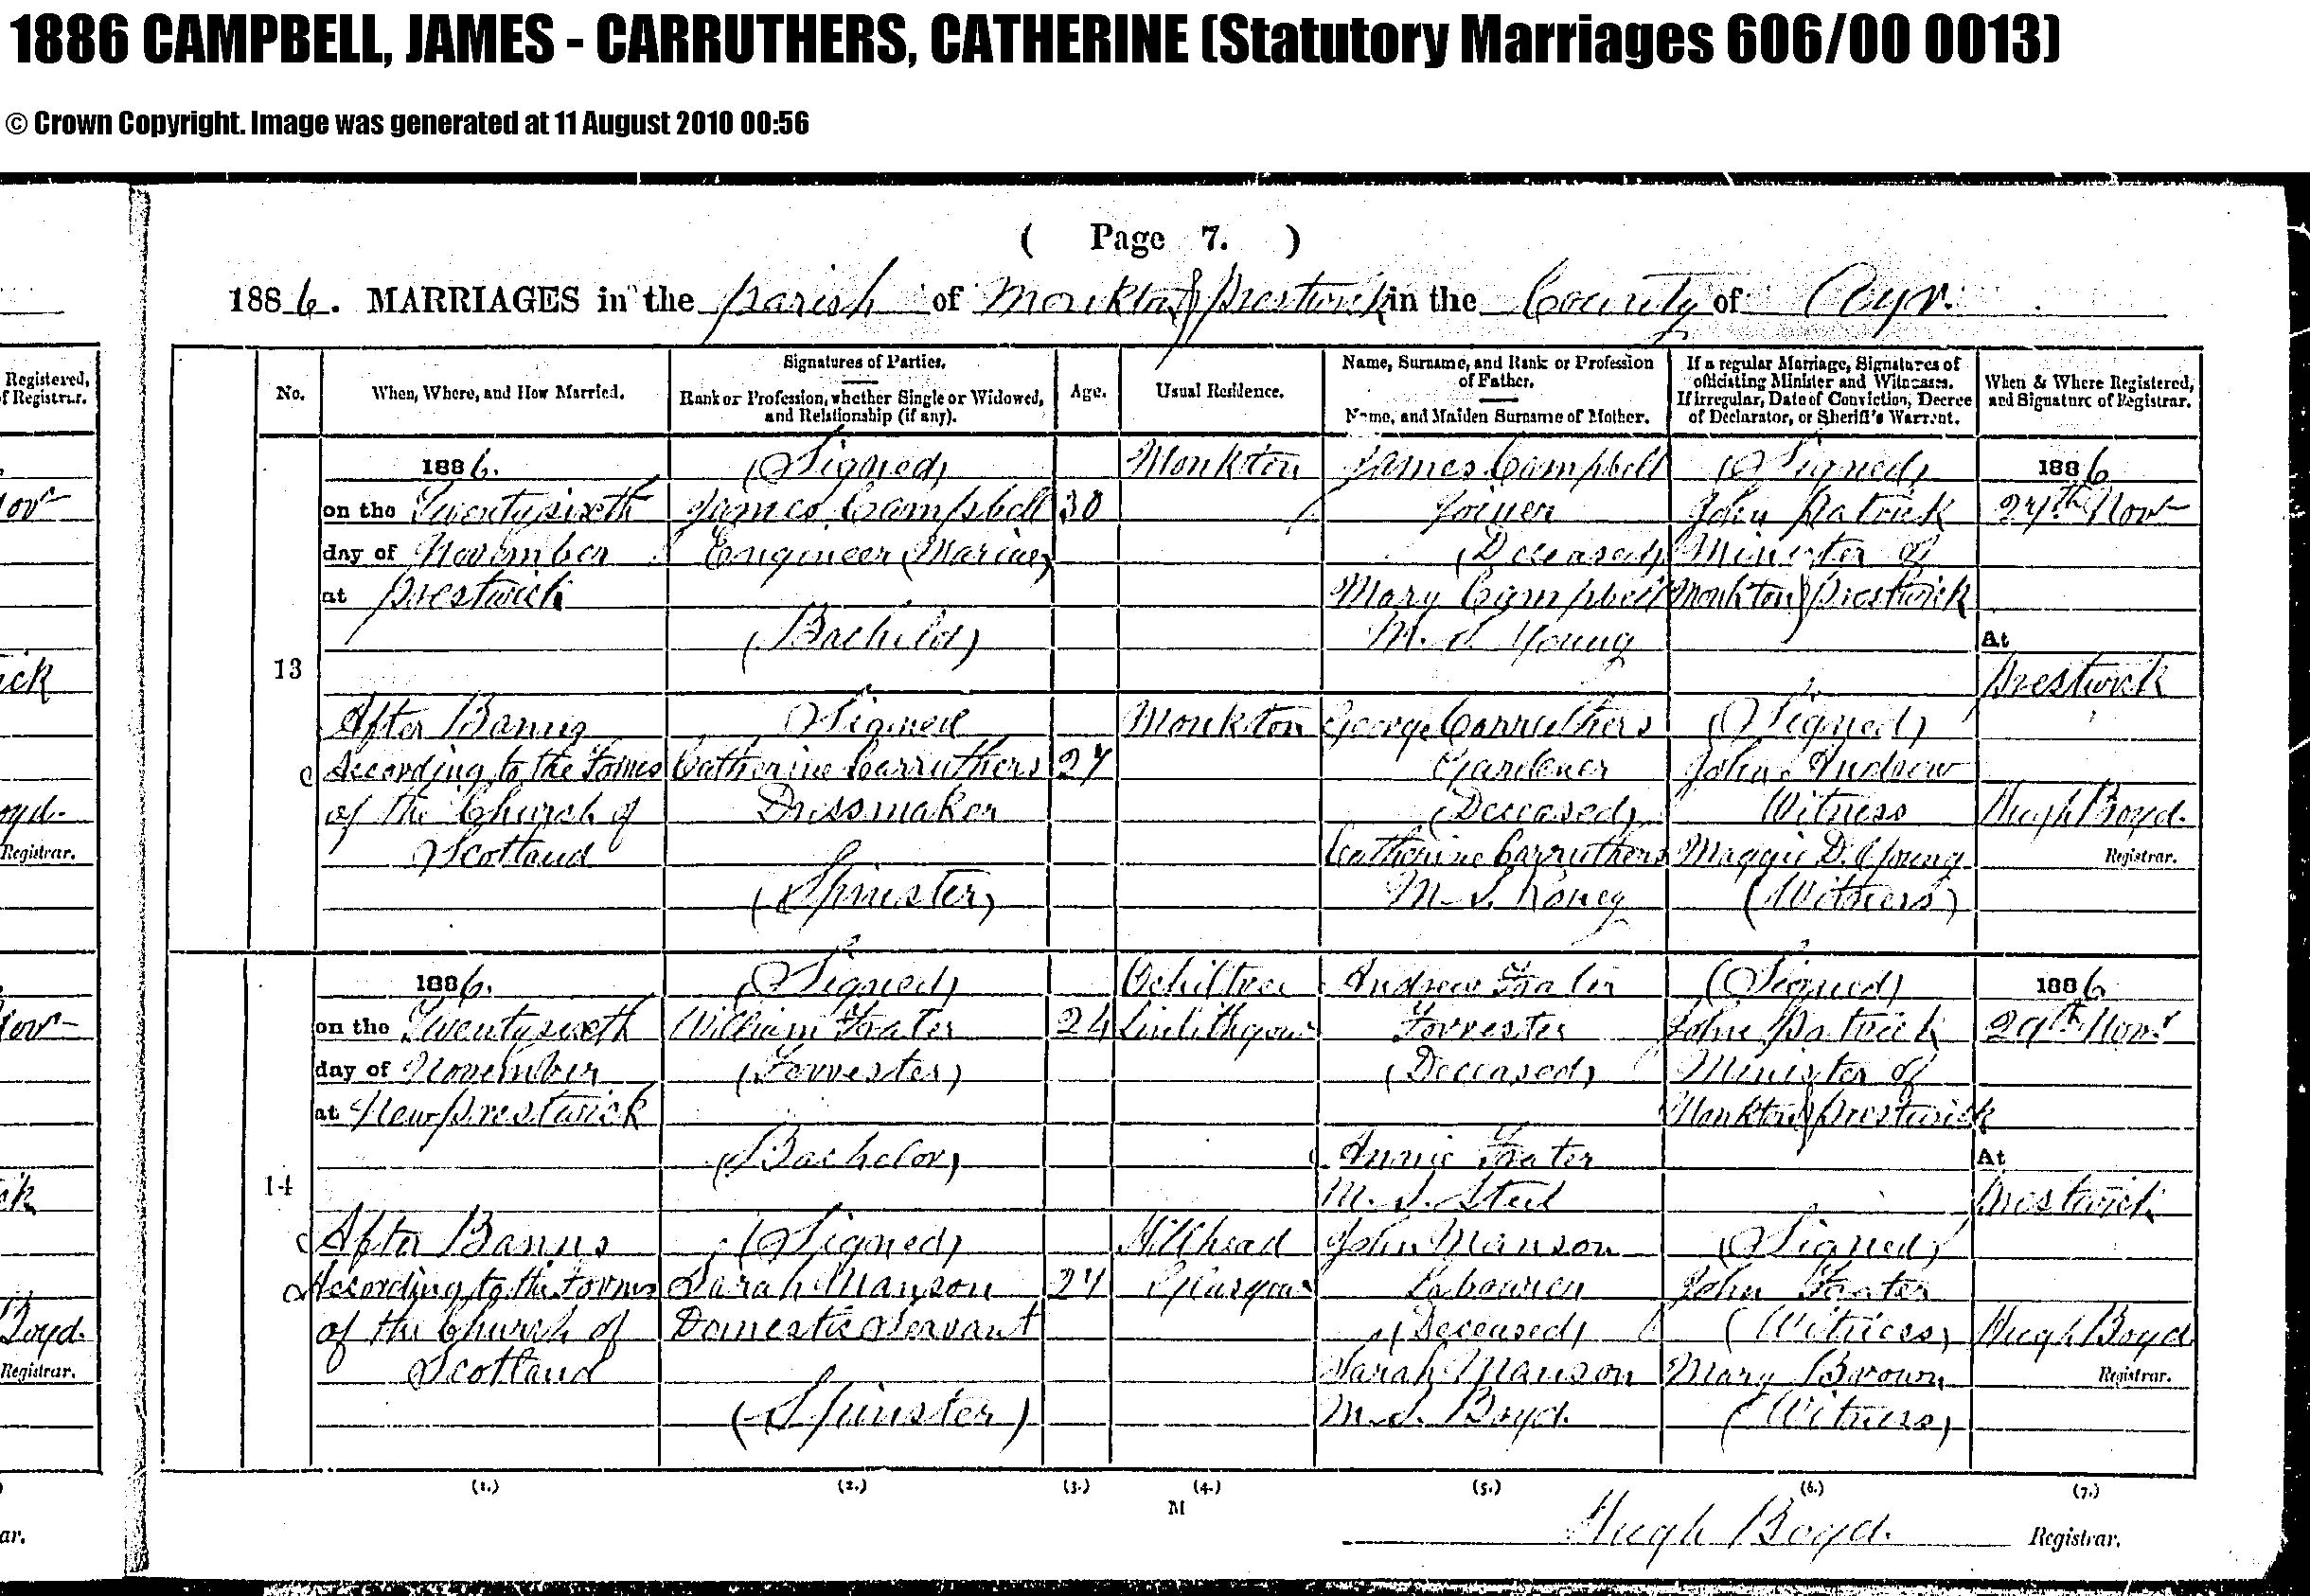 1886 CAMPBELL, JAMES - CARRUTHERS, CATHERINE (Statutory Marriages 606/00 0013)
© Crown Copyright. Image was generated at 11 August 2010 00:56
( Page 7. )
1886. MARRIAGES in the parish of Monkton & Prestwick in the County of Ayr.
No.
When, Where, and How Married.
Signatures of Parties.
Rank or Profession, whether Single or Widowed,
and Relationship (if any).
Age.
Usual Residence.
Name, Surname, and Rank or Profession
of Father.
Name, and Maiden Surname of Mother.
If a regular Marriage, Signatures of
officiating Minister and Witnesses.
If irregular, Date of Conviction, Decree
of Declarator, or Sheriff's Warrant.
When & Where Registered,
and Signature of Registrar.
13
1886.
on the Twentysixth
day of November
at Prestwick
After Banns
According to the Forms
of the Church of
Scotland
(Signed)
James Campbell
Engineer (Marine)
(Bachelor)
Signed
Catherine Carruthers
Dressmaker
(Spinster)
30
27
Monkton
Monkton
James Campbell
Joiner
(Deceased)
Mary Campbell
M. S. Young
George Carruthers
Gardener
(Deceased)
Catherine Carruthers
M. S.
(Signed)
John Patrick
Minister of
Monkton & Prestwick
(Signed)
John Andrew
Witness
Maggie D. Young
(Witness)
1886
27th Nov
At
Prestwick
Hugh Boyd.
Registrar.
14
1886.
on the Twentysixth
day of November
at New Prestwick
After Banns
According to the Forms
of the Church of
Scotland
(Signed)
William Frater
(Forrester)
(Bachelor)
(Signed)
Sarah Manson
Domestic Servant
(Spinster)
24
27
Ochiltree
Linlithgow
Hillhead
Glasgow
Andrew Frater
Forrester
(Deceased)
Annie Frater
M. S. Steel
John Manson
Labourer
(Deceased)
Sarah Manson
M. S. Boyd.
(Signed)
John Patrick
Minister of
Monkton & Prestwick
(Signed)
John Frater
(Witness)
Mary Brown
(Witness)
1886
29th Novr
At
Prestwick
Hugh Boyd
Registrar.
(1.) (2.) (3.) (4.) (5.) (6.) (7.)
M
Hugh Boyd. Registrar.